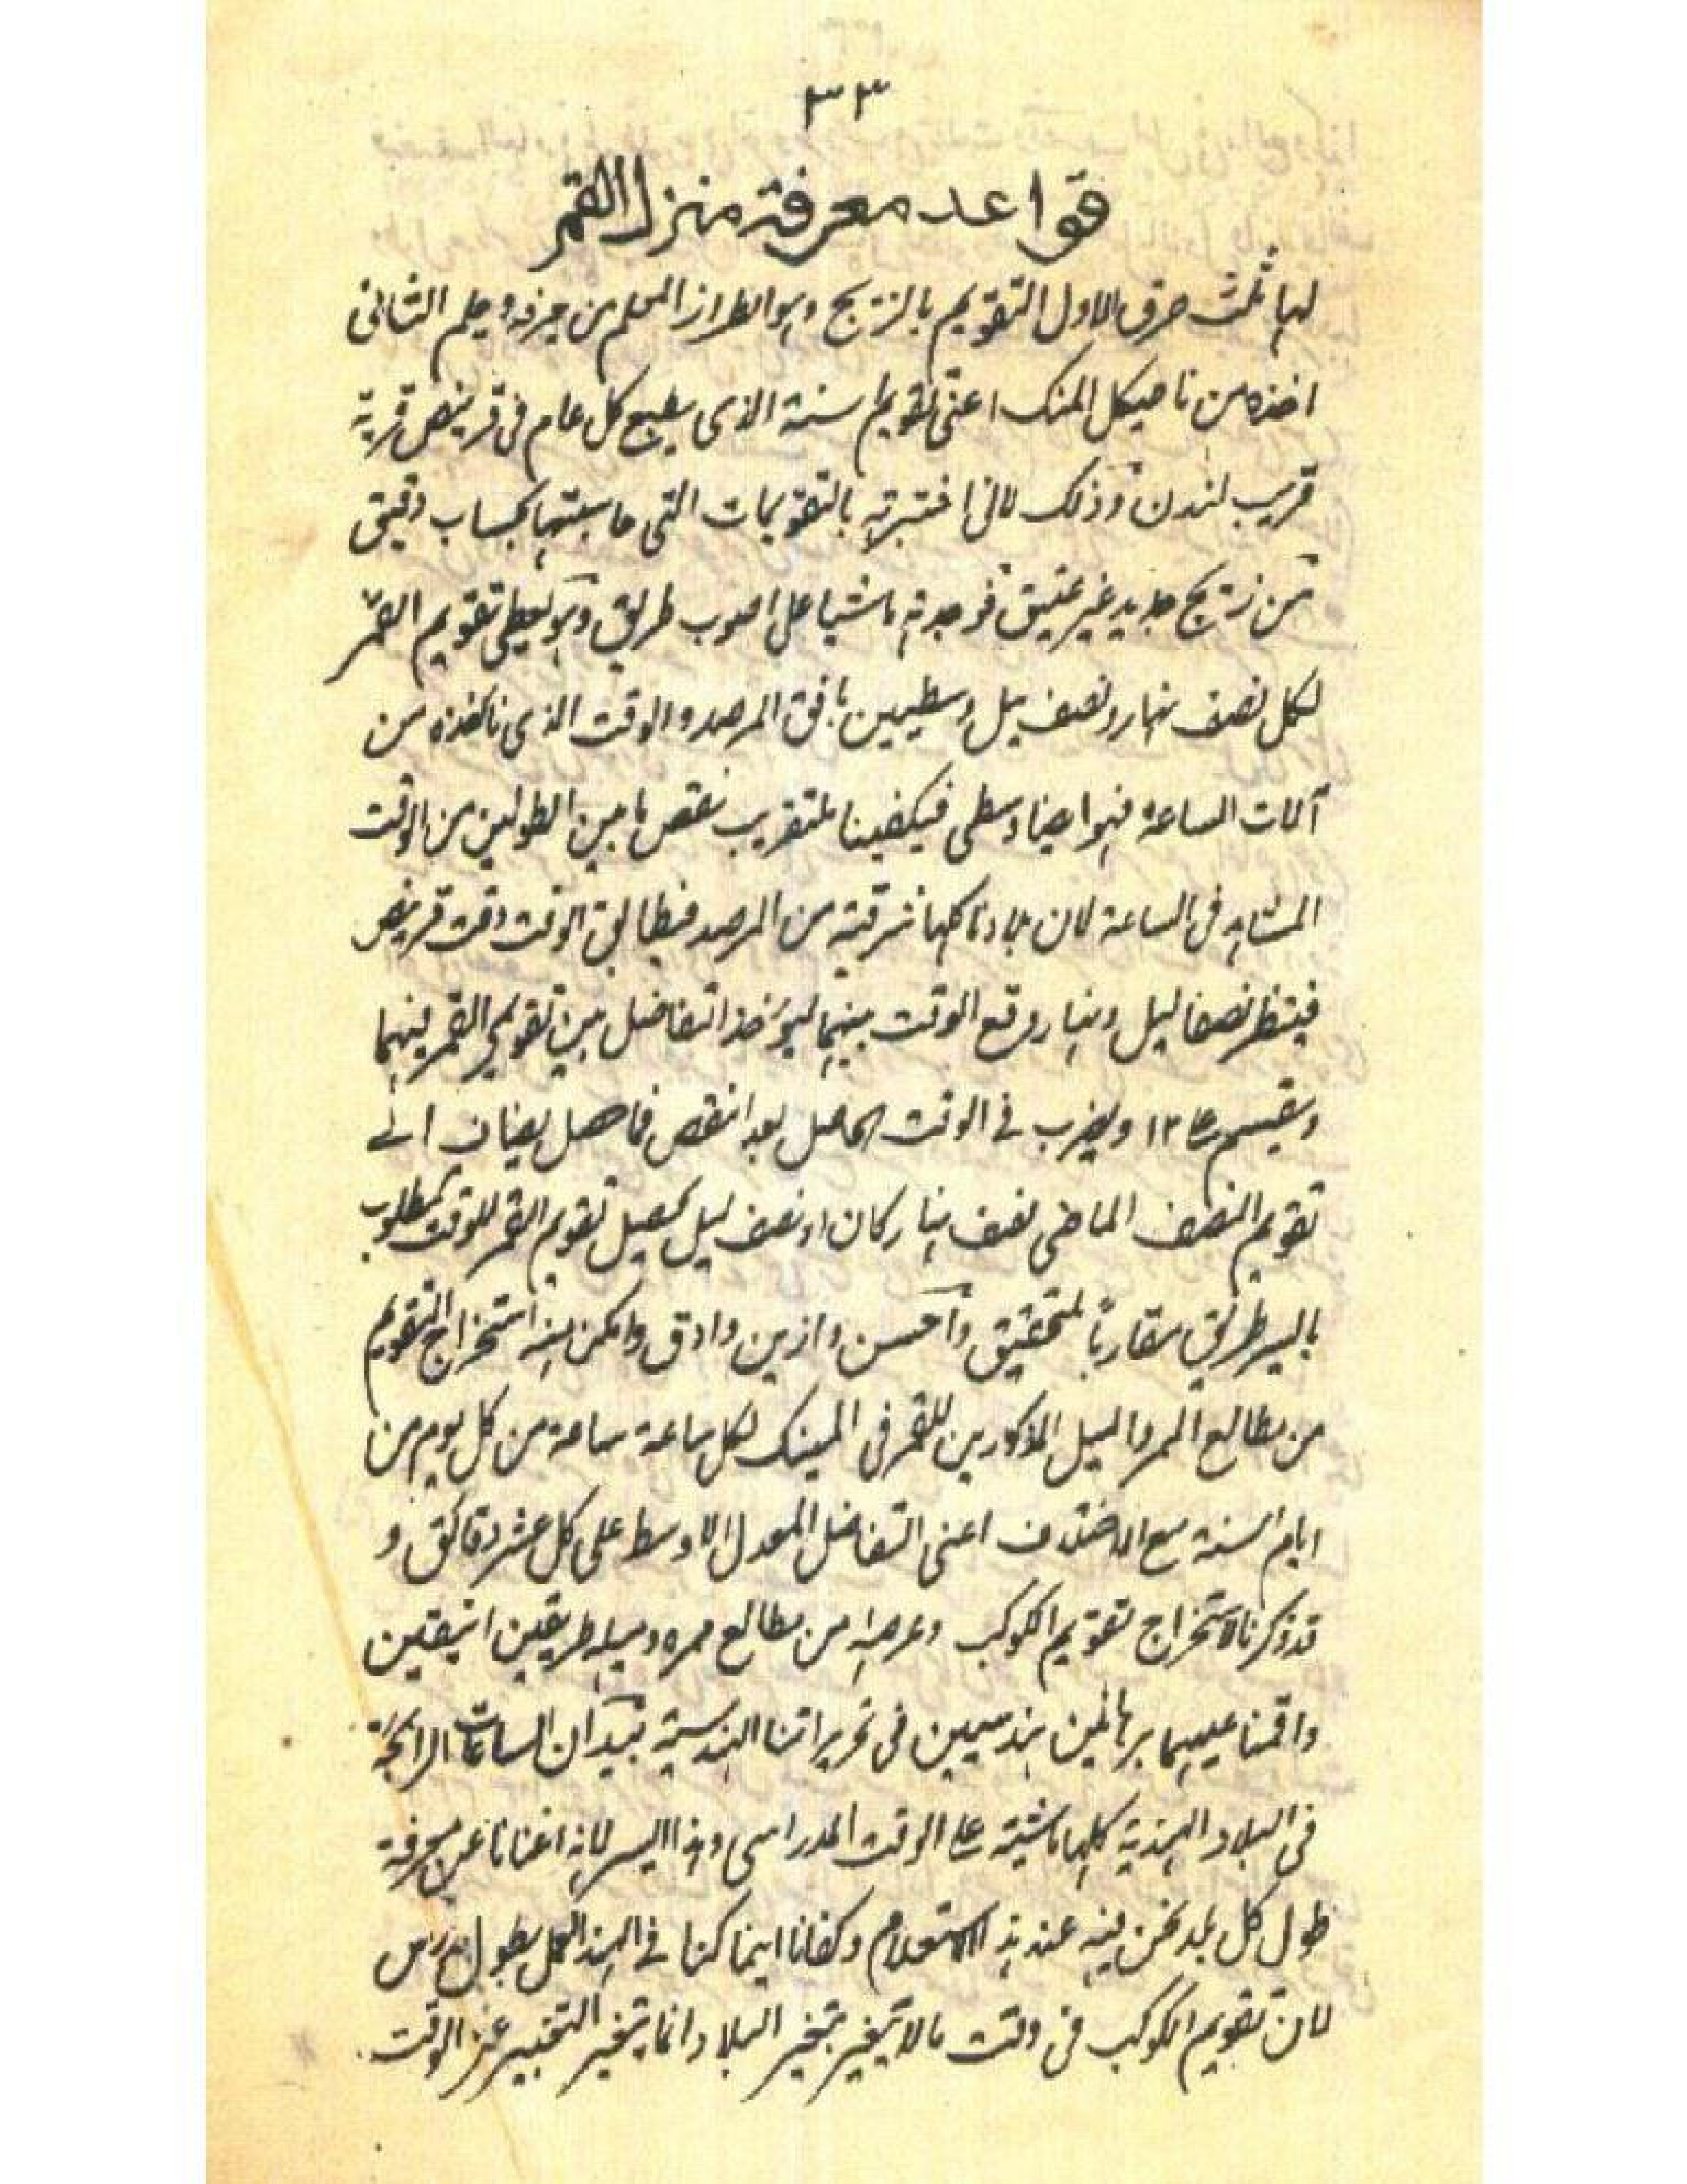 ٣٣
قواعد معرفة منزل القمر
لها ثلث طرق الاول التقويم بالزيج وهو الطراز المعلم من جزفه وعلم الثانى
اخذه من ناصيكل المنك اعنى تقويم سنة الذى يطبع كل عام فى قرينص قرية
قريب لندن وذلك لانى اختبرته بالتقويمات التى حاسبتها بحساب دقيق
من زيج جديد غير عتيق فوجدته ماشيا على اصوب طريق وهو يعطى تقويم القمر
لكل نصف نهار ونصف ليل وسطيين بافق المرصد والوقت الذى ناخذه من
آلات الساعة فهو ايضا وسطى فيكفينا للتقريب نقص ما بين الطولين من الوقت
المشاهد فى الساعة لان بلادنا كلها شرقية من المرصد فيطابق الوقت وقت قرينص
فينظر نصفا ليل ونهار وقع الوقت بينهما ليوخذ التفاضل بين تقويمى القمر فيهما
ويقسم على ١٢ ويضرب فى الوقت الحاصل بعد النقص فما حصل يضاف الى
تقويم النصف الماضى نصف نهار كان او نصف ليل يحصل تقويم القمر للوقت المطلوب
بايسر طريق مقارباً للتحقيق واحسن وازين وادق وامكن منه استخراج التقويم
من مطالع الممر والميل المذكورين للقمر فى المينك لكل ساعة ساعة من كل يوم من
ايام السنة مع الاختلاف اعنى التفاضل المعدل الاوسط على كل عشر دقائق و
قد ذكرنا لاستخراج تقويم الكوكب وعرضه من مطالع ممره وميله طريقين انيقين
واقمنا عليهما برهانين هندسيين فى تحريراتنا الهندسية بيد ان الساعات الرائجة
فى البلاد الهندية كلها ماشية على الوقت المدراسى وهذا ايسر لانه اغنانا عن معرفة
طول كل بلد نحن فيه عند هذا الاستعلام وكفانا اينما كنا فى الهند العمل بطول مدراس
لان تقويم الكوكب فى وقت ما لا يتغير بتغير البلاد وانما يتغير التعبير عن الوقت